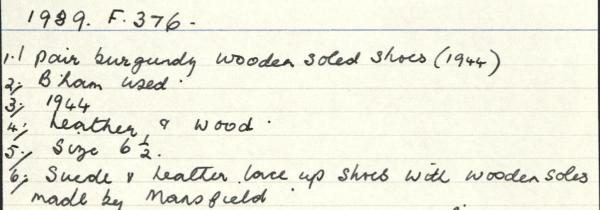 1989. F. 376.
1. 1 pair burgundy wooden soled shoes (1944)
2; B'ham used.
3; 1944
4; Leather & wood.
5; Size 6 ½.
6; Suede & leather lace up shoes with wooden soles
made by Mansfield